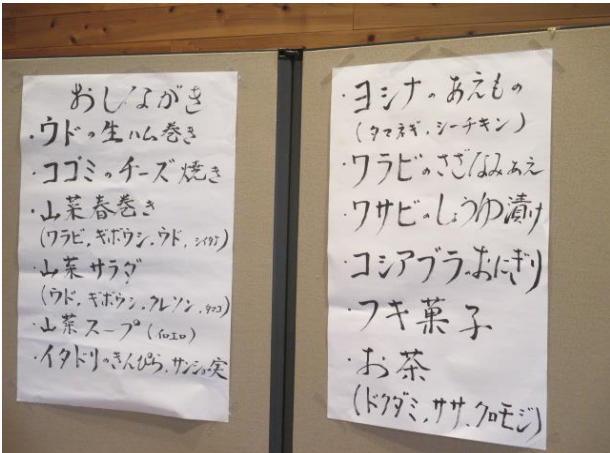 おしながき
・ウドの生ハム巻き
・コゴミのチーズ焼き
・山菜春巻き
(ワラビ,ギボウシ,ウド,シイタケ)
・山菜サラダ
(ウド,ギボウシ,クレソン,タマゴ)
・山菜スープ
・イタドリのきんぴら,サンショの実
・ヨシナのあえもの
(タマネギ,シーチキン)
・ワラビのさざなみあえ
・ワサビのしょうゆ漬け
・コシアブラのおにぎり
・フキ菓子
・お茶
(ドクダミ,ササ,クロモジ)